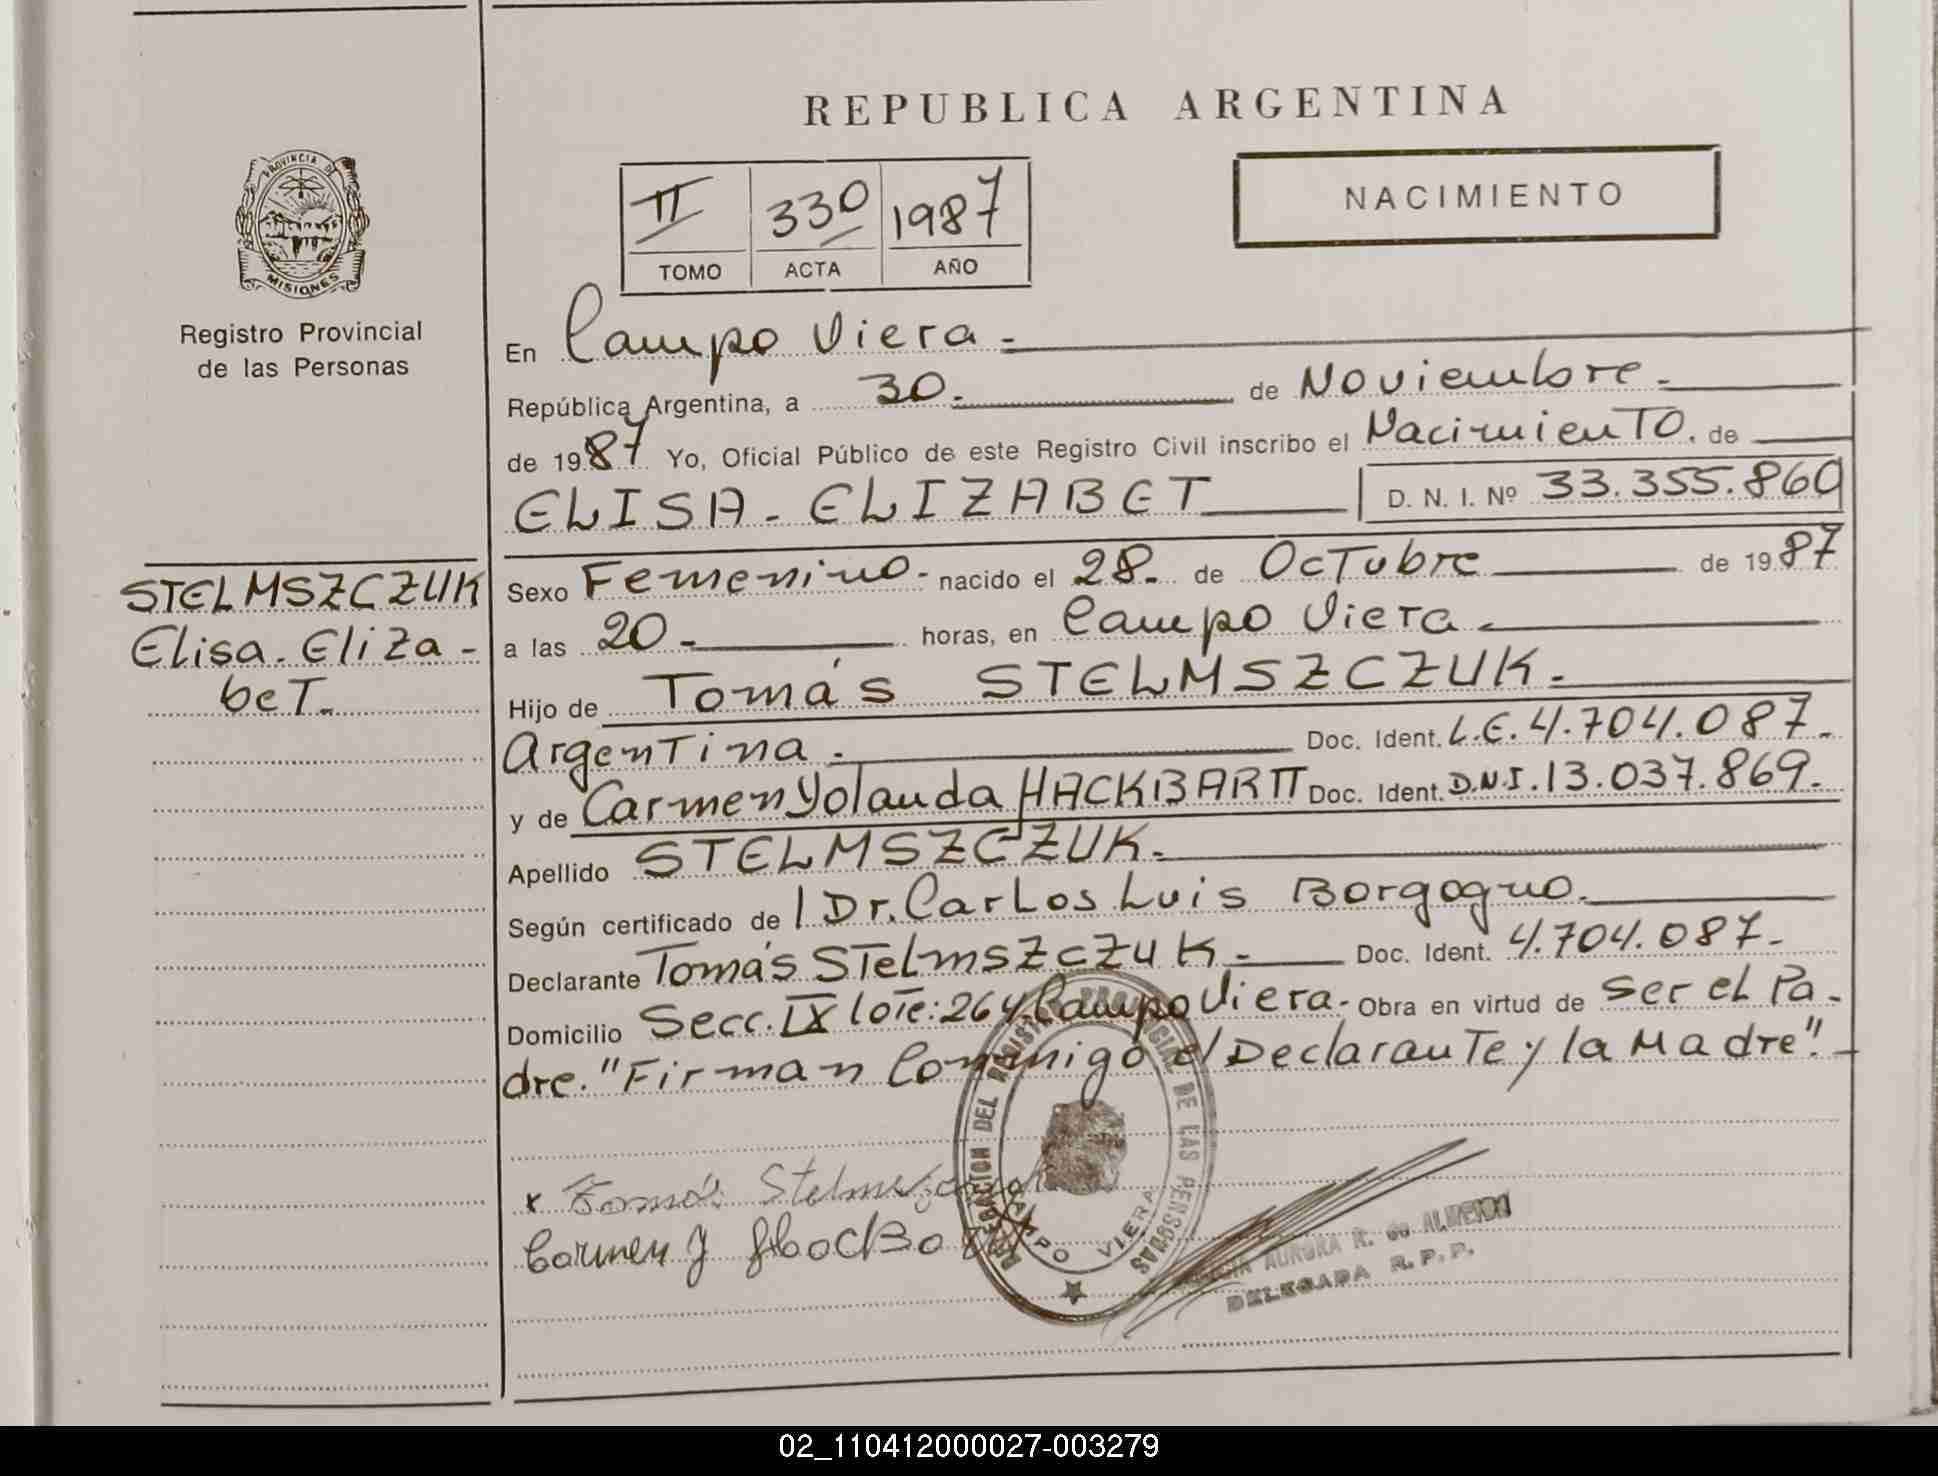 REPUBLICA ARGENTINA
PROVINCIA DE
MISIONES
Registro Provincial
de las Personas
II 330 1987
TOMO ACTA AÑO
NACIMIENTO
En Campo Viera.-
República Argentina, a 30.- de Noviembre.-
de 1987 Yo, Oficial Público de este Registro Civil inscribo el Nacimiento. de
ELISA - ELIZABET D. N. I. Nº 33.355.860
STELMSZCZUK
Elisa. Eliza-
bet.
Sexo Femenino.- nacido el 28.- de Octubre de 1987
a las 20.- horas, en Campo Viera.-
Hijo de Tomás STELMSZCZUK.-
Argentina.- Doc. Ident. L.E. 4.704.087.-
y de Carmen Yolanda HACKBARTT Doc. Ident. D.N.I. 13.037.869.-
Apellido STELMSZCZUK.-
Según certificado de Dr. Carlos Luis Borgogno.
Declarante Tomás Stelmszczuk.- Doc. Ident. 4.704.087.-
Domicilio Secc. IX lote: 264. Campo Viera.- Obra en virtud de Ser el Pa-
dre. "Firman Conmigo el Declarante y la Madre".-
DEL REGISTRO PROVINCIAL DE LAS PERSONAS
CAMPO VIERA
x Tomás
Carmen Y
AURORA R. de ALMEIDA
DELEGADA R. P. P.
02_110412000027-003279